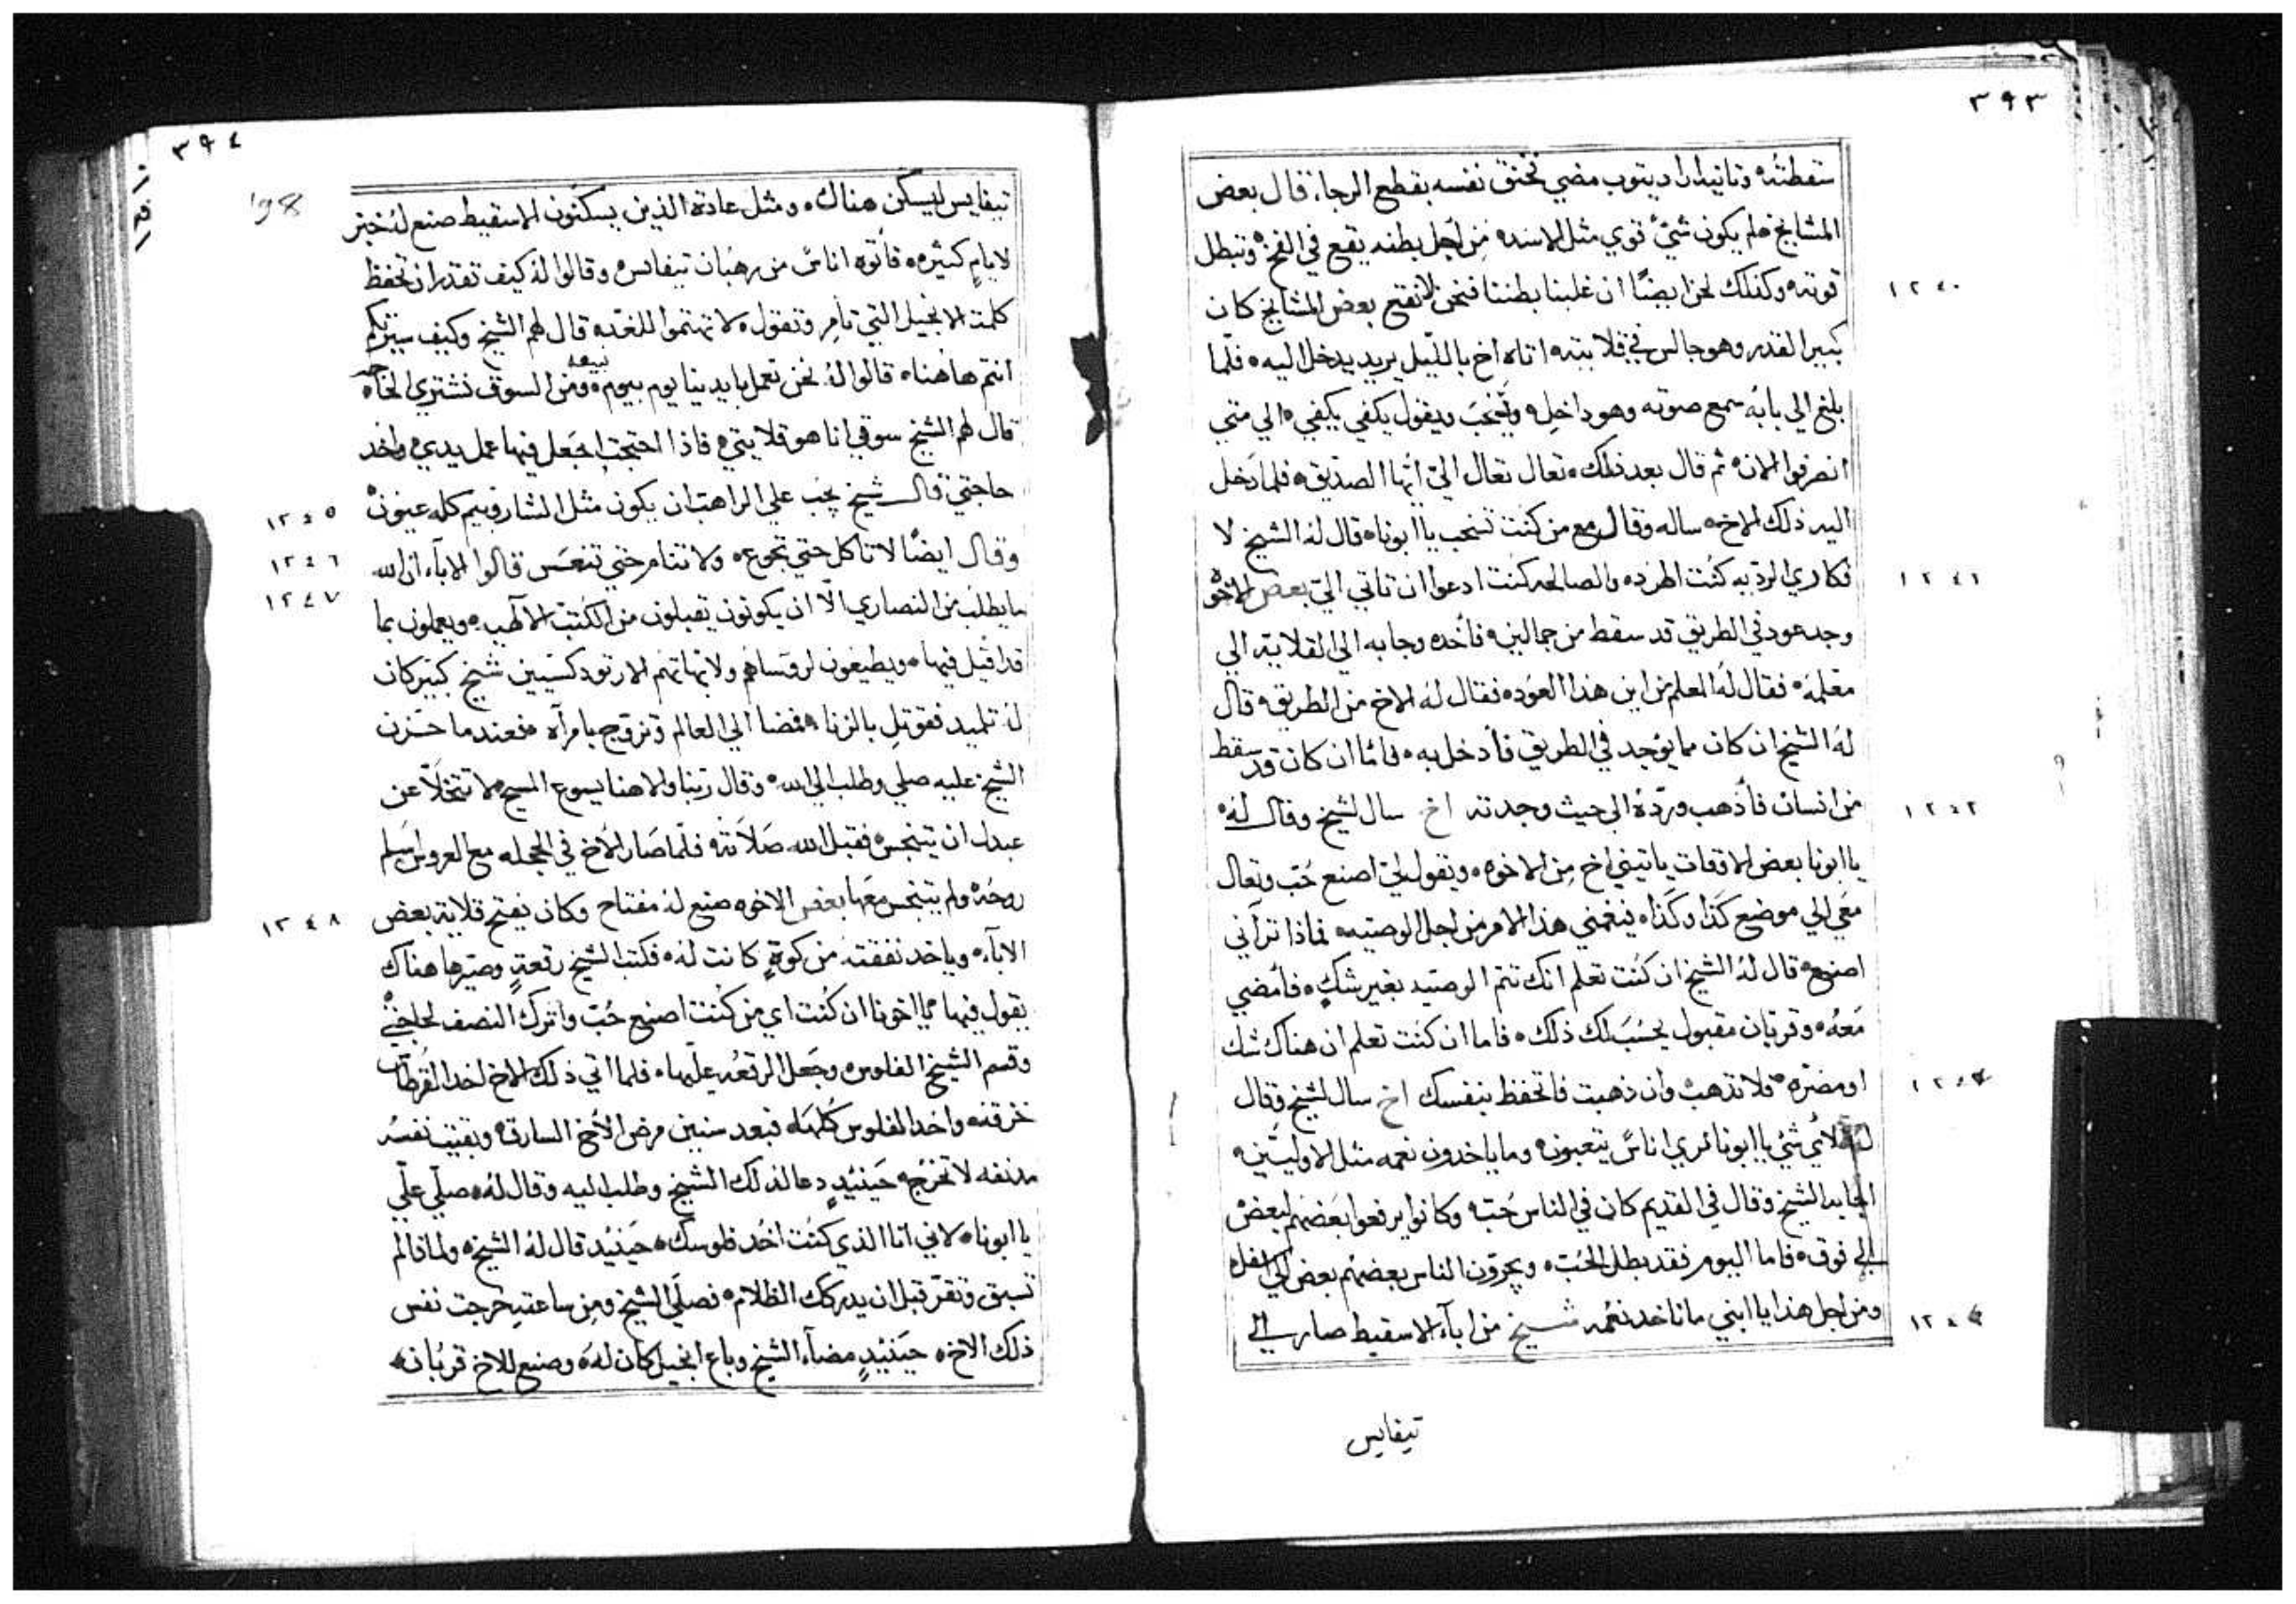 ٣٩٣
سقطته وثانيا اراد يتوب مضي تخنق نفسه بقطع الرجا، قال بعض
المشايخ هلم يكون شيء قوي مثل الاسده من اجل بطنه يقع في الفخ وتبطل
١٢٤٠
قوته وكذلك نحن ايضًا ان غلبنا بطننا فنحن نقع بعض المشايخ كان
كبير القدر وهو جالس في قلايته اتاه اخ بالليل يريد يدخل اليه، فلما
بلغ الي بابه سمع صوته وهو داخل ويقول يكفي يكفي، الي متي
انصرفوا الان ثم قال بعد ذلك، تعال تعال اليّ ايها الصديق، فلما دخل
اليه ذلك الاخ ساله وقال مع من كنت تنحب يا ابونا، قال له الشيخ لا
١٢٤١
فكاري الرديه كنت اطرده والصالحه كنت ادعوا ان تاتي اليّ بعض الاخوه
وجد عود في الطريق قد سقط من جمالين، فأخده وجا به الي القلايه الي
معلمه، فقال له المعلم من اين هذا العود، فقال له الاخ من الطريق، قال
له الشيخ ان كان مما يوجد في الطريق فأدخل به، فاما ان كان قد سقط
١٢٤٢
من انسان فأذهب وردّه الي حيث وجدته اخ سال لشيخ وقال له
يا ابونا بعض الاوقات ياتيني اخ من الاخوه، ويقول لي اصنع حُب وتعال
معي الي موضع كذا وكذا، فيغمني هذا الامر من اجل الوصيه، فماذا تراني
اصنع، قال له الشيخ ان كنت تعلم انك تتم الوصيه بغير شك، فأمضي
معه، وقربان مقبول يحسب لك ذلك، فاما ان كنت تعلم ان هناك شك
او مضره، فلا تذهب وان ذهبت فاتحفظ بنفسك اخ سال لشيخ وقال
له لاي شي يا ابونا نري اناس يتعبون، وما ياخدون نعمه مثل الاوليين،
اجابه الشيخ وقال في القديم كان في الناس حُب، وكانوا يرفعوا بعضهم لبعض
الي فوق، فاما اليوم فقد بطل الحُب، ويجرون الناس بعضهم بعض الي اسفل
ومن اجل هذا يا ابني ما ناخد نعمه شيخ من اباء الاسقيط صار الي
تيفايس
٣٩٤
198
تيفايس ليسكن هناك، ومثل عادة الذين يسكنون الاسقيط صنع له خبز
لايام كثيره، فأتوه اناس من رهبان تيفايس، وقالوا له كيف تقدر ان تحفظ
كلمت الانجيل التي تامر وتقول لا تهتموا للغد، قال لهم الشيخ وكيف سيرتكم
انتم هاهنا، قالوا له نحن نعمل بايدينا يوم بيوم، نبيعه ومن السوق نشتري الحاجه
قال لهم الشيخ سوقي انا هو قلايتي، فاذا احتجت اجعل فيها عمل يدي، واخد
١٢٤٥
حاجتي، قال شيخ يجب علي الراهب ان يكون مثل الشاروبيم كله عيون
١٢٤٦
وقال ايضًا لا تاكل حتي تجوع، ولا تنام حتي تنعس قالوا الاباء ان الله
١٢٤٧
ما يطلب من النصاري الّا ان يكونون يقبلون من الكتب الالهيه، ويعملون بما
قد اقيل فيها، ويطيعون لروساهم ولابهاتهم الارتودكسيين شيخ كبير كان
له تلميد فقوتل بالزنا، فمضا الي العالم وتزوج بامرآه، فعندما حزن
الشيخ عليه صلي وطلب الي الله، وقال ربنا والاهنا يسوع المسيح لا تتخلّا عن
عبدك ان يتنجس، فقبل الله صلاته، فلما صار الاخ في الحجله مع العروس اسلم
١٢٤٨
روحه ولم يتنجس معها بعض الاخوه صنع له مفتاح وكان يفتح قلاية بعض
الاباء، وياخد نفقته من كوةٍ كانت له، فكتب الشيخ رقعةٍ وصيرها هناك
يقول فيها يا اخونا ان كنت اي من كنت اصنع حُب واترك النصف لحاجتي
وقسم الشيخ الفلوس، وجعل الرقعه عليها، فلما اتي ذلك الاخ اخد القرطاس
خرقه، واخد الفلوس كلها، فبعد سنين مرض الاخ السارق، وبقيت نفسه
مدنفه لا تخرج، حينيدٍ دعا لذلك الشيخ وطلب اليه وقال له، صلّي عليّ
يا ابونا، لاني انا الذي كنت اخد فلوسك، حينيد قال له الشيخ، ولماذا لم
تسبق وتقرّ قبل ان يدركك الظلام، فصلّي الشيخ ومن ساعته خرجت نفس
ذلك الاخ، حينيدٍ مضا الشيخ وباع انجيل كان له، وصنع للاخ قربان،